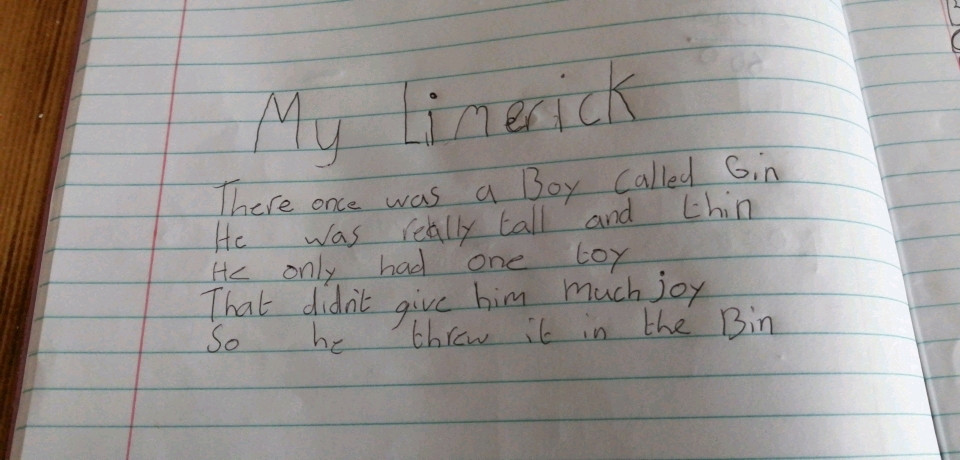 My Limerick
There once was a Boy called Gin
He was really tall and thin
He only had one toy
That didn't give him much joy
So he threw it in the Bin